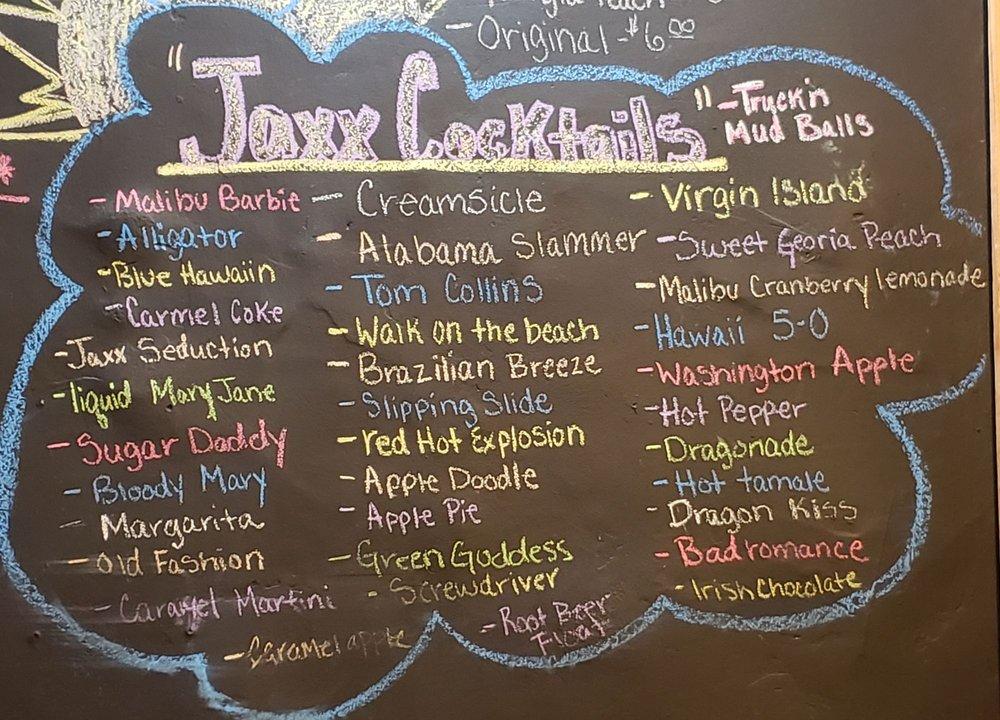 - Original - $6.00
"Jaxx Cocktails"
- Truckin
Mud Balls
- Malibu Barbie
- Alligator
- Blue Hawaiin
- Carmel Coke
- Jaxx Seduction
- liquid Mary Jane
- Sugar Daddy
- Bloody Mary
- Margarita
- Old Fashion
- Caramel Martini
- Caramel apple
- Creamsicle
- Alabama Slammer
- Tom Collins
- Walk on the beach
- Brazilian Breeze
- Slipping Slide
- red Hot Explosion
- Apple Doodle
- Apple Pie
- Green Goddess
- Screwdriver
- Root Beer
Float
- Virgin Island
- Sweet Georia Peach
- Malibu Cranberry lemonade
- Hawaii 5-0
- Washington Apple
- Hot Pepper
- Dragonade
- Hot tamale
- Dragon Kiss
- Bad romance
- Irish Chocolate